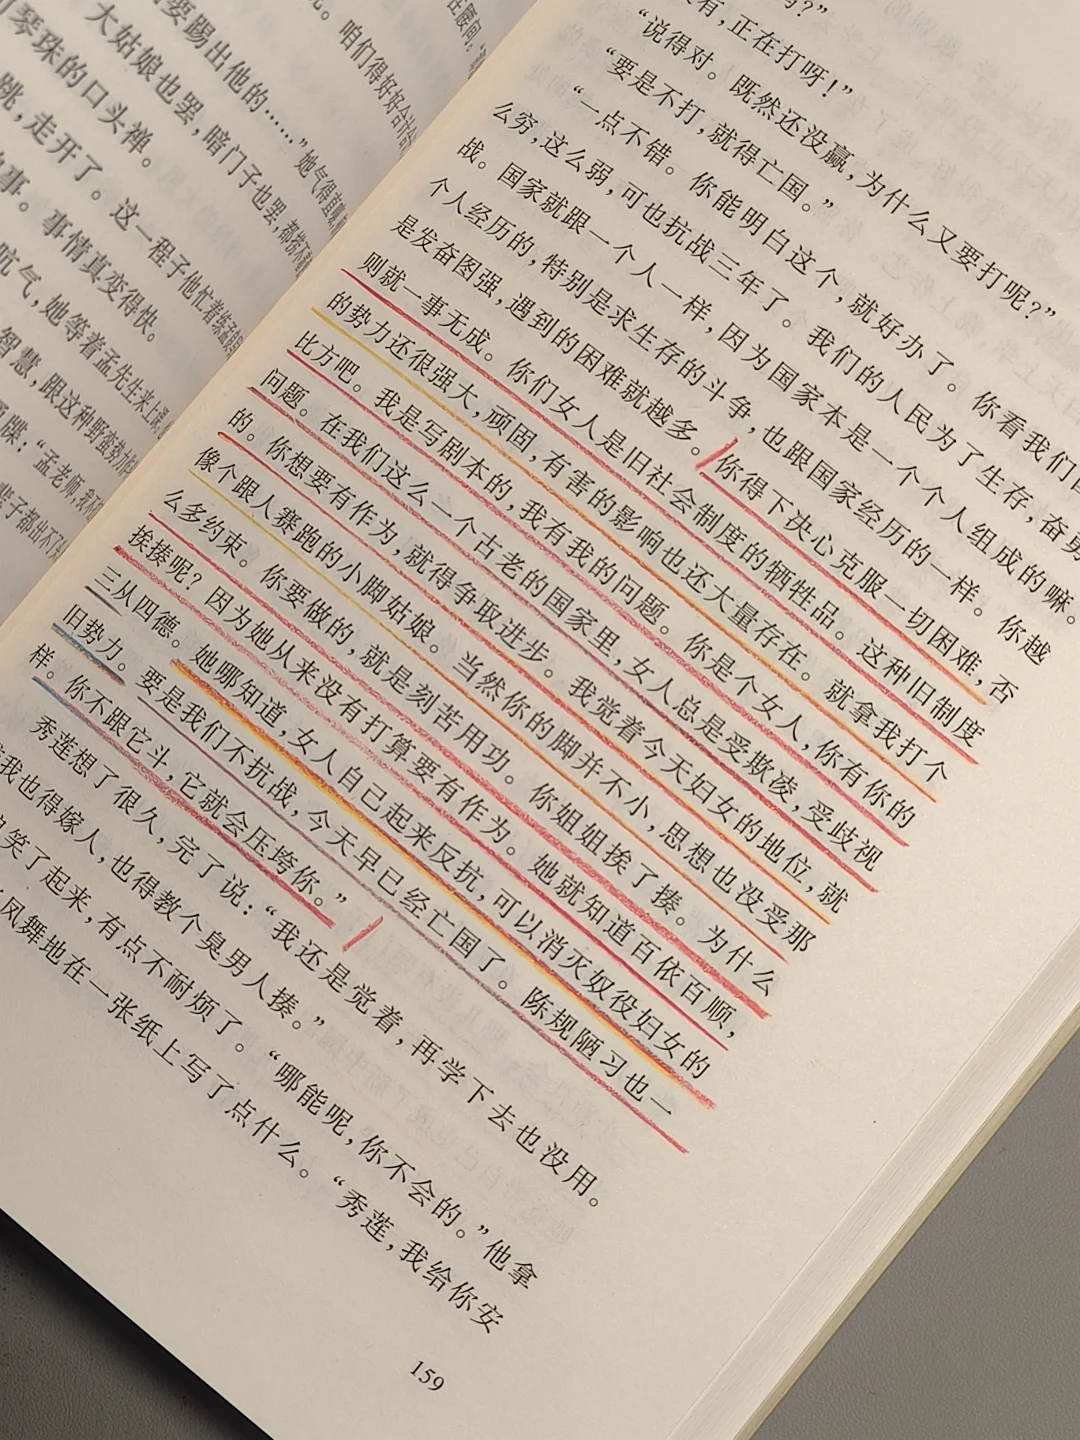 在腰间。
咱们得好好合计合
要踢出他的……”她气得直
大姑娘也罢,暗门子也罢,都
琴珠的口头禅。
跳,走开了。这一程子他忙着练
事。事情真变得快。
吭气,她等着孟先生来上
智慧,跟这种野蛮势力
牒:“孟老师,我
辈子都出不了
吗?”
有,正在打呀!”
“说得对。既然还没赢,为什么又要打呢?”
“要是不打,就得亡国。”
“一点不错。你能明白这个,就好办了。你看我们
么穷,这么弱,可也抗战三年了。我们的人民为了生存,奋勇
战。国家就跟一个人一样,因为国家本是一个个人组成的嘛。
个人经历的,特别是求生存的斗争,也跟国家经历的一样。你越
是发奋图强,遇到的困难就越多。你得下决心克服一切困难,否
则就一事无成。你们女人是旧社会制度的牺牲品。这种旧制度
的势力还很强大,顽固,有害的影响也还大量存在。就拿我打个
比方吧。我是写剧本的,我有我的问题。你是个女人,你有你的
问题。在我们这么一个古老的国家里,女人总是受欺凌,受歧视
的。你想要有作为,就得争取进步。我觉着今天妇女的地位,就
像个跟人赛跑的小脚姑娘。当然你的脚并不小,思想也没受那
么多约束。你要做的,就是刻苦用功。你姐姐挨了揍。为什么
挨揍呢?因为她从来没有打算要有作为。她就知道百依百顺,
三从四德。她哪知道,女人自己起来反抗,可以消灭奴役妇女的
旧势力。要是我们不抗战,今天早已经亡国了。陈规陋习也一
样。你不跟它斗,它就会压垮你。”
秀莲想了很久,完了说:“我还是觉着,再学下去也没用。
我也得嫁人,也得教个臭男人揍。”
笑了起来,有点不耐烦了。“哪能呢,你不会的。”他拿
风舞地在一张纸上写了点什么。“秀莲,我给你安
159